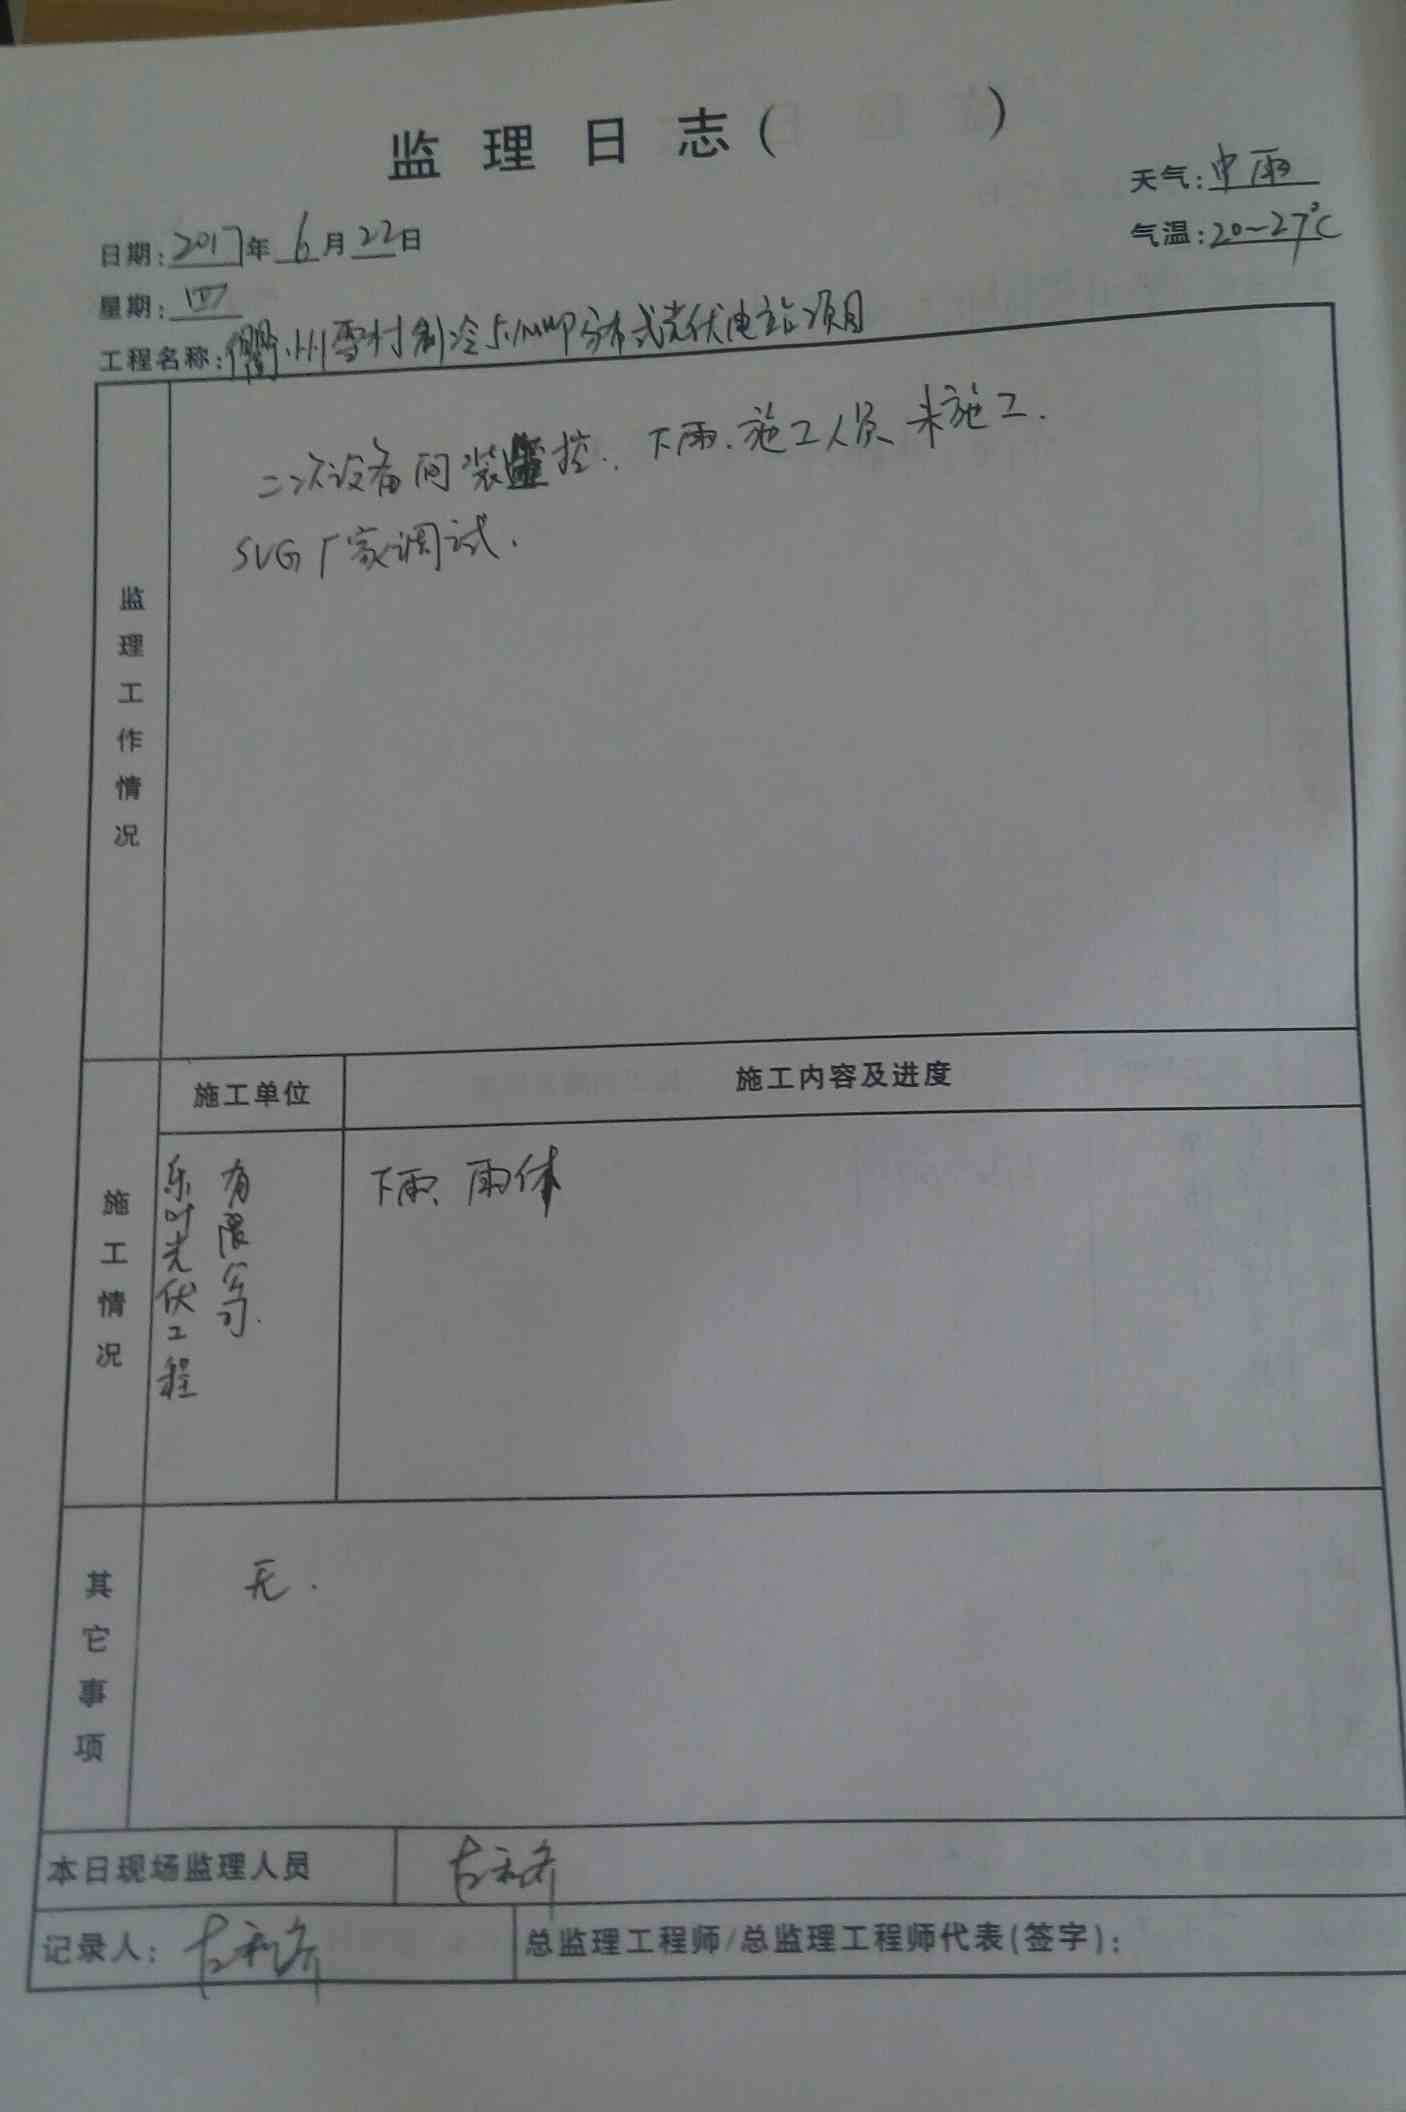 监理日志( )
天气:中雨
日期:2017年6月22日
气温:20~27℃
星期:四
工程名称:衢州雪村制冷5.1MWP分布式光伏电站项目
监理工作情况
二次设备间装监控. 下雨.施工人员未施工.
SVG厂家调试.
施工情况
施工单位
施工内容及进度
乐叶光伏工程
有限公司.
下雨、雨休
其它事项
无.
本日现场监理人员
记录人:
总监理工程师/总监理工程师代表(签字):